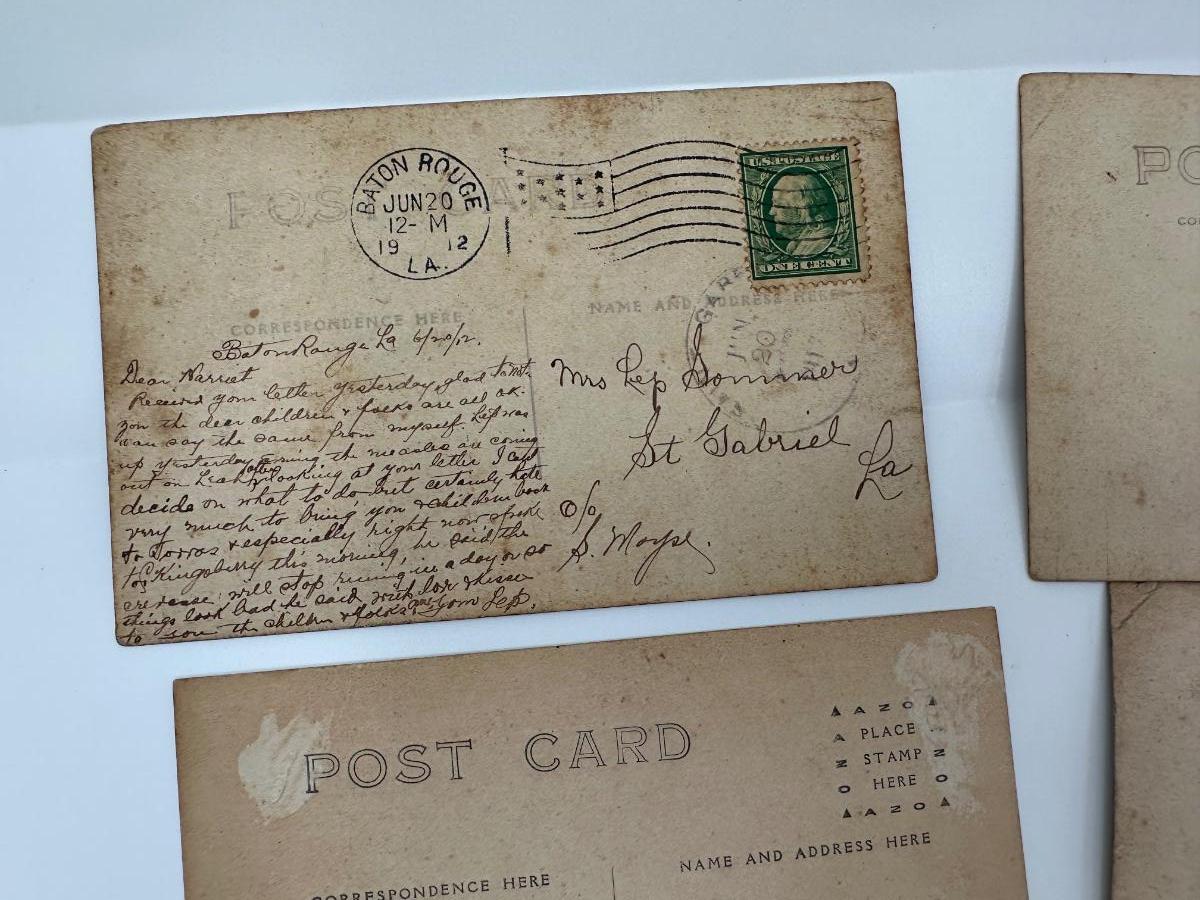 POST CARD
BATON ROUGE
JUN 20
12- M
19 12
LA.
U.S. POSTAGE
ONE CENT
CORRESPONDENCE HERE
NAME AND ADDRESS HERE
JUN
20
Baton Rouge La 6/20/12.
Dear Harriet
Received your letter yesterday, glad to note
you the dear children & folks are all ok.
can say the same from myself. Lep was
up yesterday the measles are coming
out on Leah after looking at your letter I cant
decide on what to do but certainly hate
very much to bring you & children back
to Torras & especially right now spoke
to Kingsberry this morning, he said the
crevasse will stop runing in a day or so
things look bad he said with love & kisses
to you the children & folks from Lep.
Mrs Lep Sommer
St Gabriel
La
c/o
S. Moyse.
PO
CO
POST CARD
AZO
PLACE
STAMP
HERE
AZO
CORRESPONDENCE HERE
NAME AND ADDRESS HERE